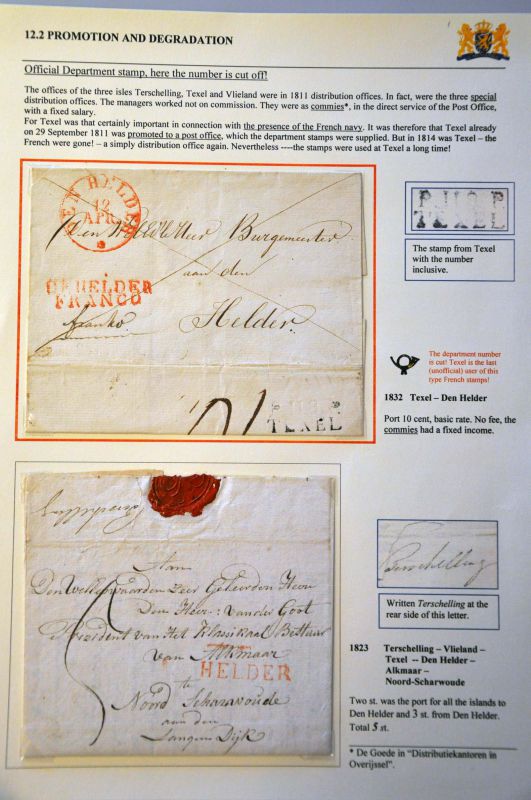 12.2 PROMOTION AND DEGRADATION
Official Department stamp, here the number is cut off!
The offices of the three isles Terschelling, Texel and Vlieland were in 1811 distribution offices. In fact, were the three special
distribution offices. The managers worked not on commission. They were as commies*, in the direct service of the Post Office,
with a fixed salary.
For Texel was that certainly important in connection with the presence of the French navy. It was therefore that Texel already
on 29 September 1811 was promoted to a post office, which the department stamps were supplied. But in 1814 was Texel – the
French were gone! – a simply distribution office again. Nevertheless ----the stamps were used at Texel a long time!
DEN HELDER
12
APR
Den Burgemeester
aan den
Helder
HELDER
FRANCO
franko
TEXEL
P.118.P
TEXEL
The stamp from Texel
with the number
inclusive.
The department number
is cut! Texel is the last
(unofficial) user of this
type French stamps!
1832 Texel – Den Helder
Port 10 cent, basic rate. No fee, the
commies had a fixed income.
Terschelling
Aan
Den Wel Eerwaarden Zeer Geleerden Heere
Den Heer: vander Goot
President van Het Klassikaal Bestuur
van Alkmaar
HELDER
te
Noord Scharwoude
aan den
Langen Dijk
Terschelling
Written Terschelling at the
rear side of this letter.
1823 Terschelling – Vlieland –
Texel -- Den Helder –
Alkmaar –
Noord-Scharwoude
Two st. was the port for all the islands to
Den Helder and 3 st. from Den Helder.
Total 5 st.
* De Goede in "Distributiekantoren in
Overijssel".